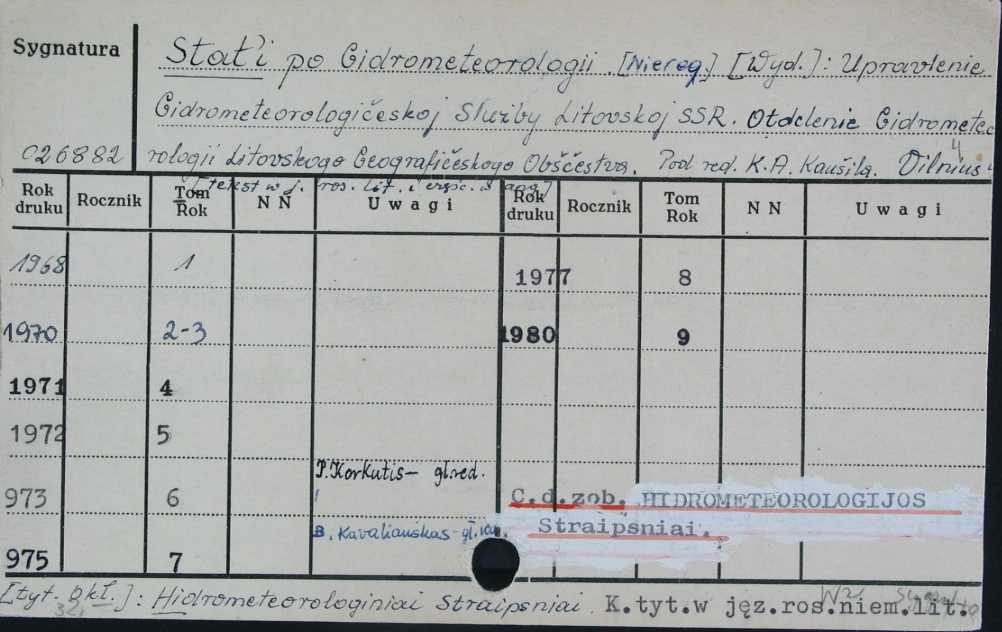 Sygnatura
Stat'i po Gidrometeorologii. [Niereg.] [Wyd.]: Upravlenie
Gidrometeorologičeskoj Služby Litovskoj SSR. Otdelenie Gidrometeo
026882 rologii Litovskogo Geografičeskogo Obščestva. Pod red. K.A. Kaušila. Vilnius
w j. ros. lit. i
Rok druku Rocznik Tom Rok NN Uwagi Rok druku Rocznik Tom Rok NN Uwagi
1968 1 1977 8
1970 2-3 1980 9
1971 4
1972 5
P. Korkutis - gł. red.
973 6 C.d.zob. HIDROMETEOROLOGIJOS
B. Kavaliauskas - gł. red. Straipsniai.
975 7
[tyt. okł.]: Hidrometeorologiniai Straipsniai. K.tyt.w jęz.ros.niem.lit.